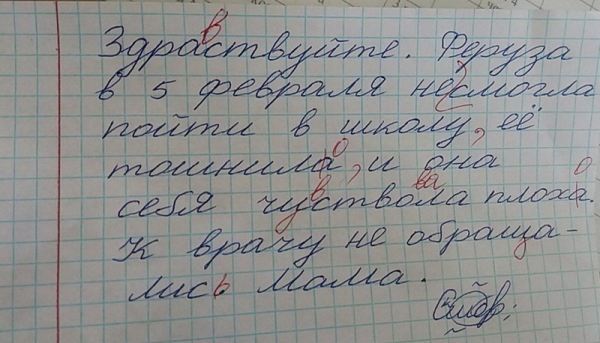 Здраствуйте. Феруза
в 5 февраля несмогла
пойти в школу, её
тошнила, и она
себя чуствола плоха.
К врачу не обраща-
лись мама.